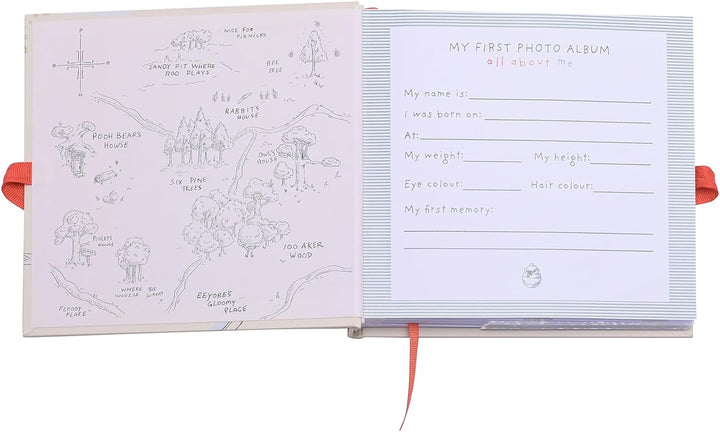 NICE FOR
PIKNICKS
SANDY PIT WHERE
ROO PLAYS
BEE
TREE
P
H
RABBIT'S
HOUSE
POOH BEAR'S
HOUSE
OWL'S
HOUSE
SIX PINE
TREES
PIGLET'S
HOUSE
WHERE THE
WOOZLE WASN'T
100 AKER
WOOD
FLOODY
PLACE
EEYORE'S
GLOOMY
PLACE
MY FIRST PHOTO ALBUM
all about me
My name is:
I was born on:
At:
My weight: My height:
Eye colour: Hair colour:
My first memory: